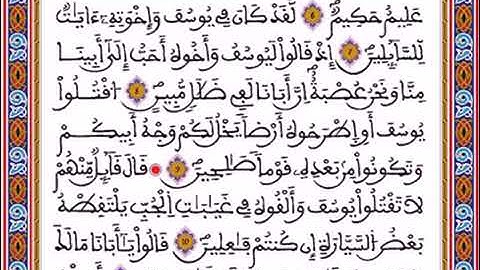 عَلِيمٌ حَكِيمٌ 6 لَّقَدْ كَانَ فِے يُوسُفَ وَإِخْوَتِهِۦٓ ءَايَٰتٌ
لِّلسَّآئِلِينَ 7 إِذْ قَالُواْ لَيُوسُفُ وَأَخُوهُ أَحَبُّ إِلَىٰٓ أَبِينَا
مِنَّا وَنَحْنُ عُصْبَةٌ إِنَّ أَبَانَا لَفِے ضَلَٰلٖ مُّبِينٍ 8 اُقْتُلُواْ
يُوسُفَ أَوِ اِطْرَحُوهُ أَرْضاٗ يَخْلُ لَكُمْ وَجْهُ أَبِيكُمْ
وَتَكُونُواْ مِنۢ بَعْدِهِۦ قَوْماٗ صَٰلِحِينَ 9 قَالَ قَآئِلٌ مِّنْهُمْ
لَا تَقْتُلُواْ يُوسُفَ وَأَلْقُوهُ فِے غَيَٰبَٰتِ اِلْجُبِّ يَلْتَقِطْهُ
بَعْضُ اُلسَّيَّارَةِ إِن كُنتُمْ فَٰعِلِينَ 10 قَالُواْ يَٰٓأَبَانَا مَا لَكَ